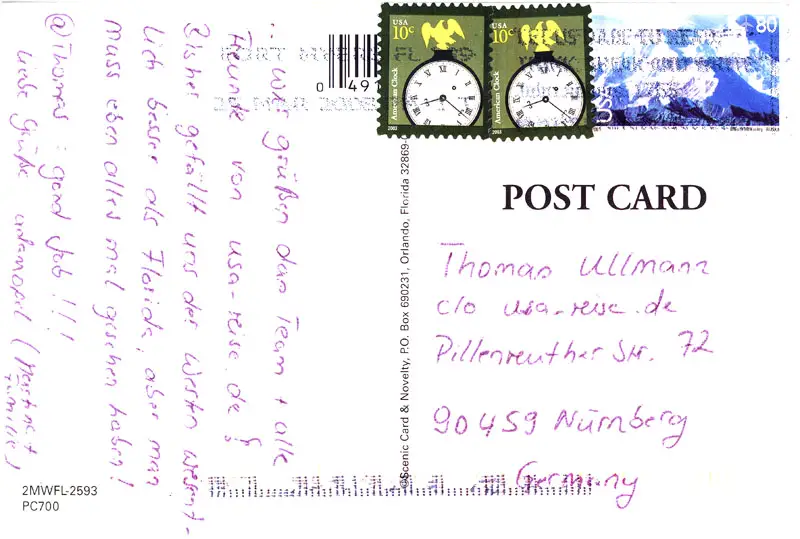 ... wir grüßen das Team + alle
Freunde von usa-reise.de !
Bisher gefällt uns der Westen wesent-
lich besser als Florida, aber man
muss eben alles mal gesehen haben!
@Thomas: good Job !!!
Liebe Grüße
(Martina +
Familie)
USA
10c
American Clock
2003
USA
10c
American Clock
2003
80
USA
FORT MYERS FL 339
0 491
POST CARD
Thomas Ullmann
c/o usa-reise.de
Pillenreuther Str. 72
90459 Nürnberg
Germany
©Scenic Card & Novelty, P.O. Box 690231, Orlando, Florida 32869-0
2MWFL-2593
PC700